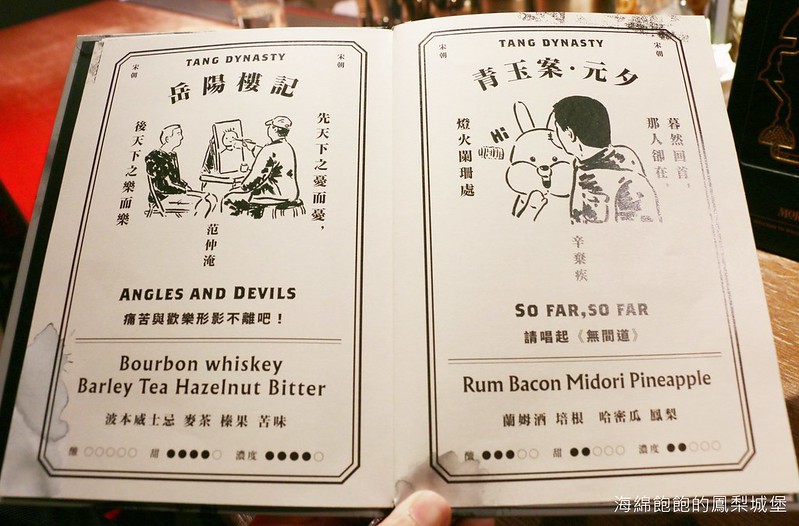 TANG DYNASTY
宋朝
宋朝
岳陽樓記
先天下之憂而憂，
後天下之樂而樂
范仲淹
ANGLES AND DEVILS
痛苦與歡樂形影不離吧！
Bourbon whiskey
Barley Tea Hazelnut Bitter
波本威士忌 麥茶 榛果 苦味
酸 ○○○○○ 甜 ●●●●○ 濃度 ●●●●○
TANG DYNASTY
宋朝
宋朝
青玉案・元夕
暮然回首，
那人卻在，
燈火闌珊處
Hi
辛棄疾
SO FAR, SO FAR
請唱起《無間道》
Rum Bacon Midori Pineapple
蘭姆酒 培根 哈密瓜 鳳梨
酸 ●●●○○ 甜 ●●○○○ 濃度 ●●○○○
海綿飽飽的鳳梨城堡